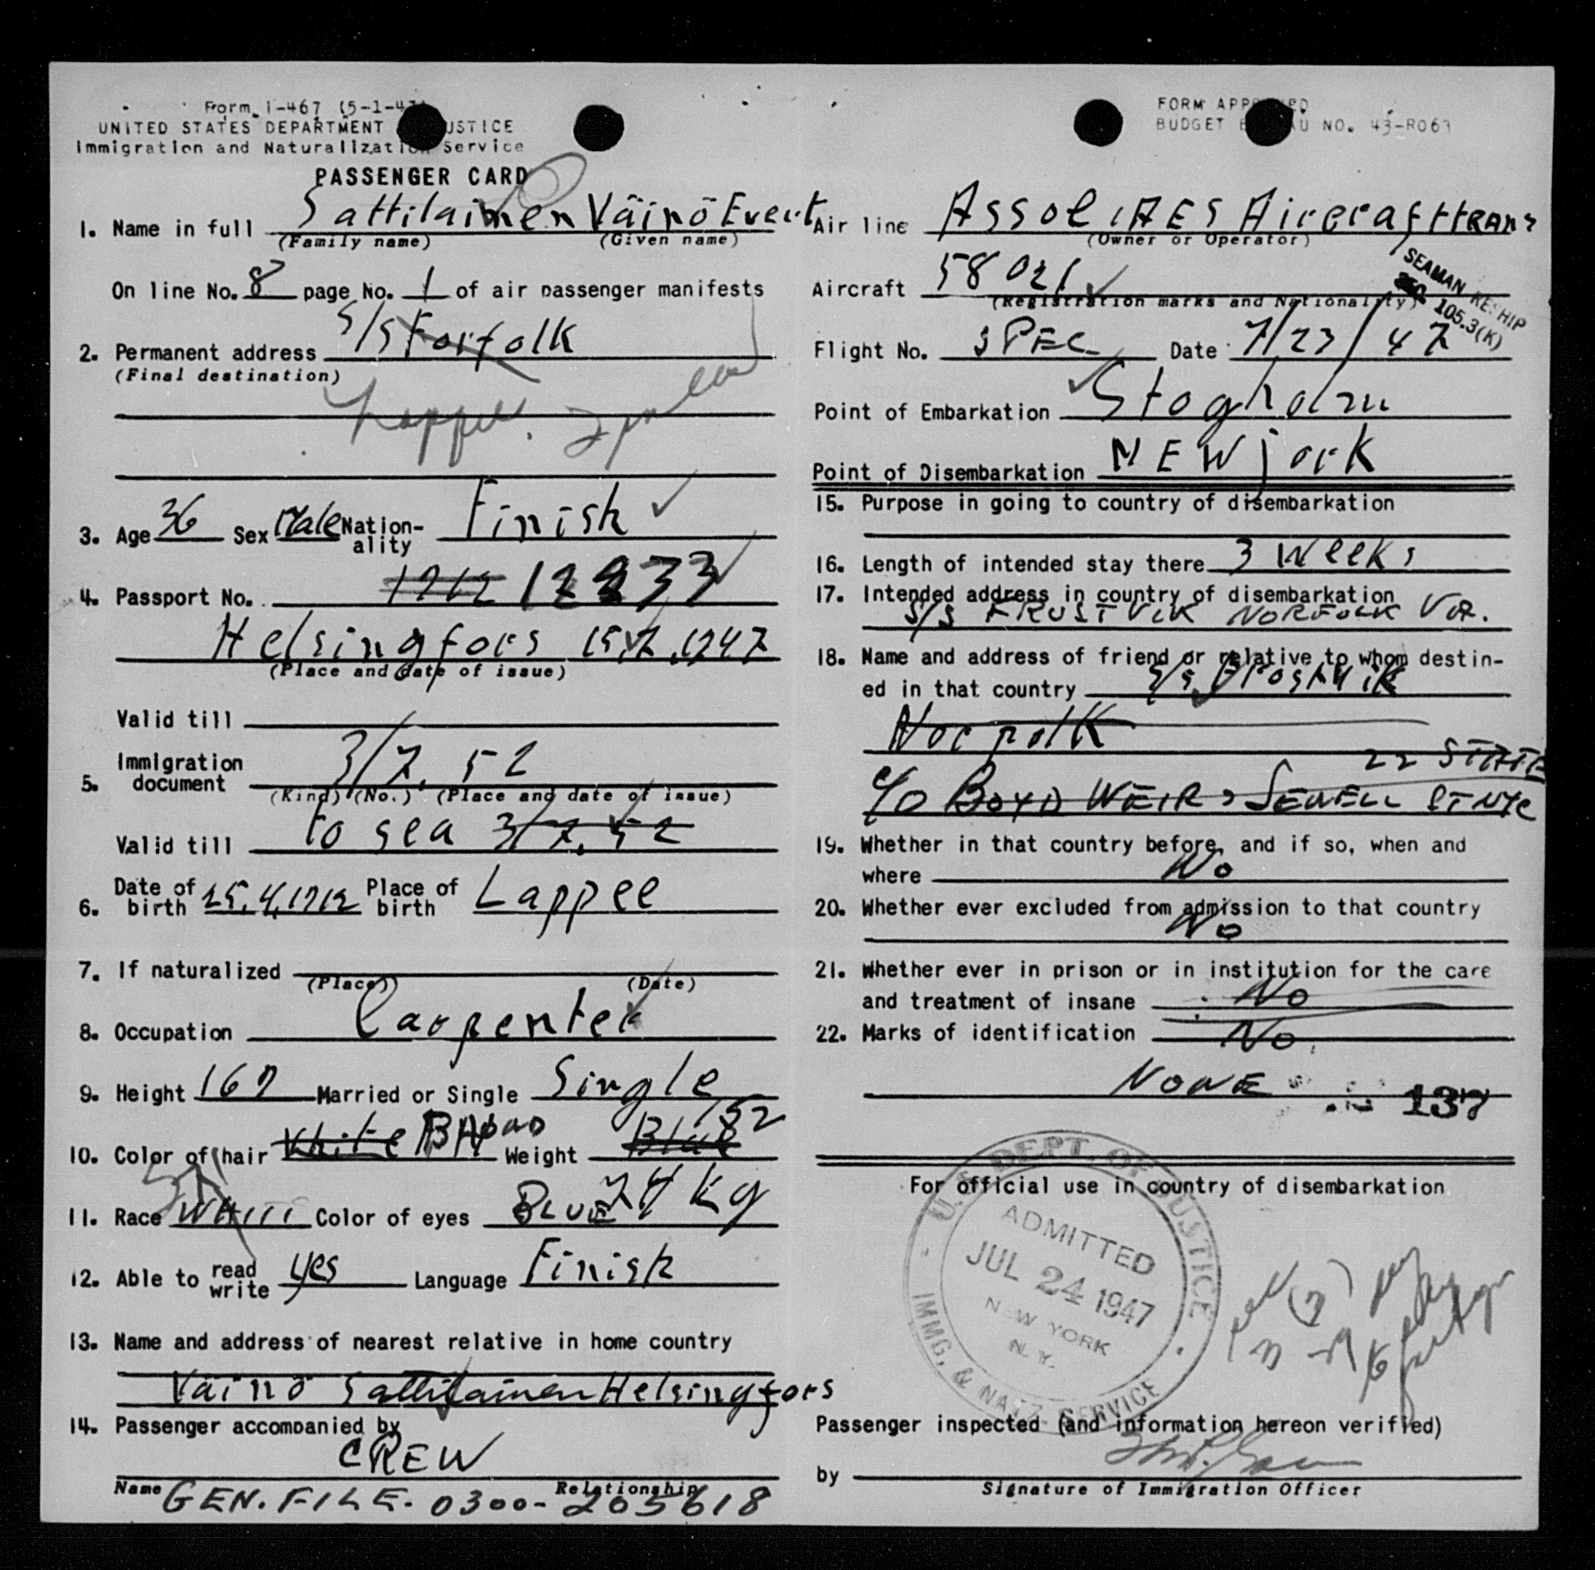 Form I-467 (5-1-4
UNITED STATES DEPARTMENT JUSTICE
Immigration and Naturalization Service
PASSENGER CARD
1. Name in full Sattilainen Väinö Evert
(Family name) (Given name)
On line No. 8 page No. 1 of air passenger manifests
2. Permanent address S/S Forfolk
(Final destination)
Lappee.
3. Age 36 Sex Male Nationality Finish
4. Passport No. 1912 12833
Helsingfors 15.7.1947
(Place and date of issue)
Valid till
5. Immigration document 3/7.52
(Kind) (No.) (Place and date of issue)
Valid till to sea 3/7.52
6. Date of birth 25.4.1912 Place of birth Lappee
7. If naturalized
(Place) (Date)
8. Occupation Carpenter
9. Height 167 Married or Single Single
10. Color of hair White Weight Blue 152
11. Race White Color of eyes BLUE 74 kg
12. Able to read write yes Language Finish
13. Name and address of nearest relative in home country
Väinö Sattilainen Helsingfors
14. Passenger accompanied by
CREW
Name Relationship
GEN. FILE. 0300-205618
FORM APPROVED
BUDGET BUREAU NO. 43-R063
Air line Aircraft trans
(Owner or Operator)
Aircraft 58021
(Registration marks and Nationality)
SEAMAN RESHIP
105.3(K)
Flight No. SPEC Date 7/23/47
Point of Embarkation Stogholm
Point of Disembarkation NEW jork
15. Purpose in going to country of disembarkation
16. Length of intended stay there 3 Weeks
17. Intended address in country of disembarkation
S/S FROSTVIK NORFOLK VA.
18. Name and address of friend or relative to whom destined in that country S/S Frostvik
Norfolk
22 STATE
c/o BOYD WEIR & SEWELL ST NYC
19. Whether in that country before, and if so, when and
where No
20. Whether ever excluded from admission to that country
No
21. Whether ever in prison or in institution for the care
and treatment of insane No
22. Marks of identification No.
NONE
137
For official use in country of disembarkation
U.S. DEPT. OF JUSTICE
ADMITTED
JUL 24 1947
NEW YORK
N.Y.
IMMG. & NATZ. SERVICE
Passenger inspected (and information hereon verified)
by
Signature of Immigration Officer